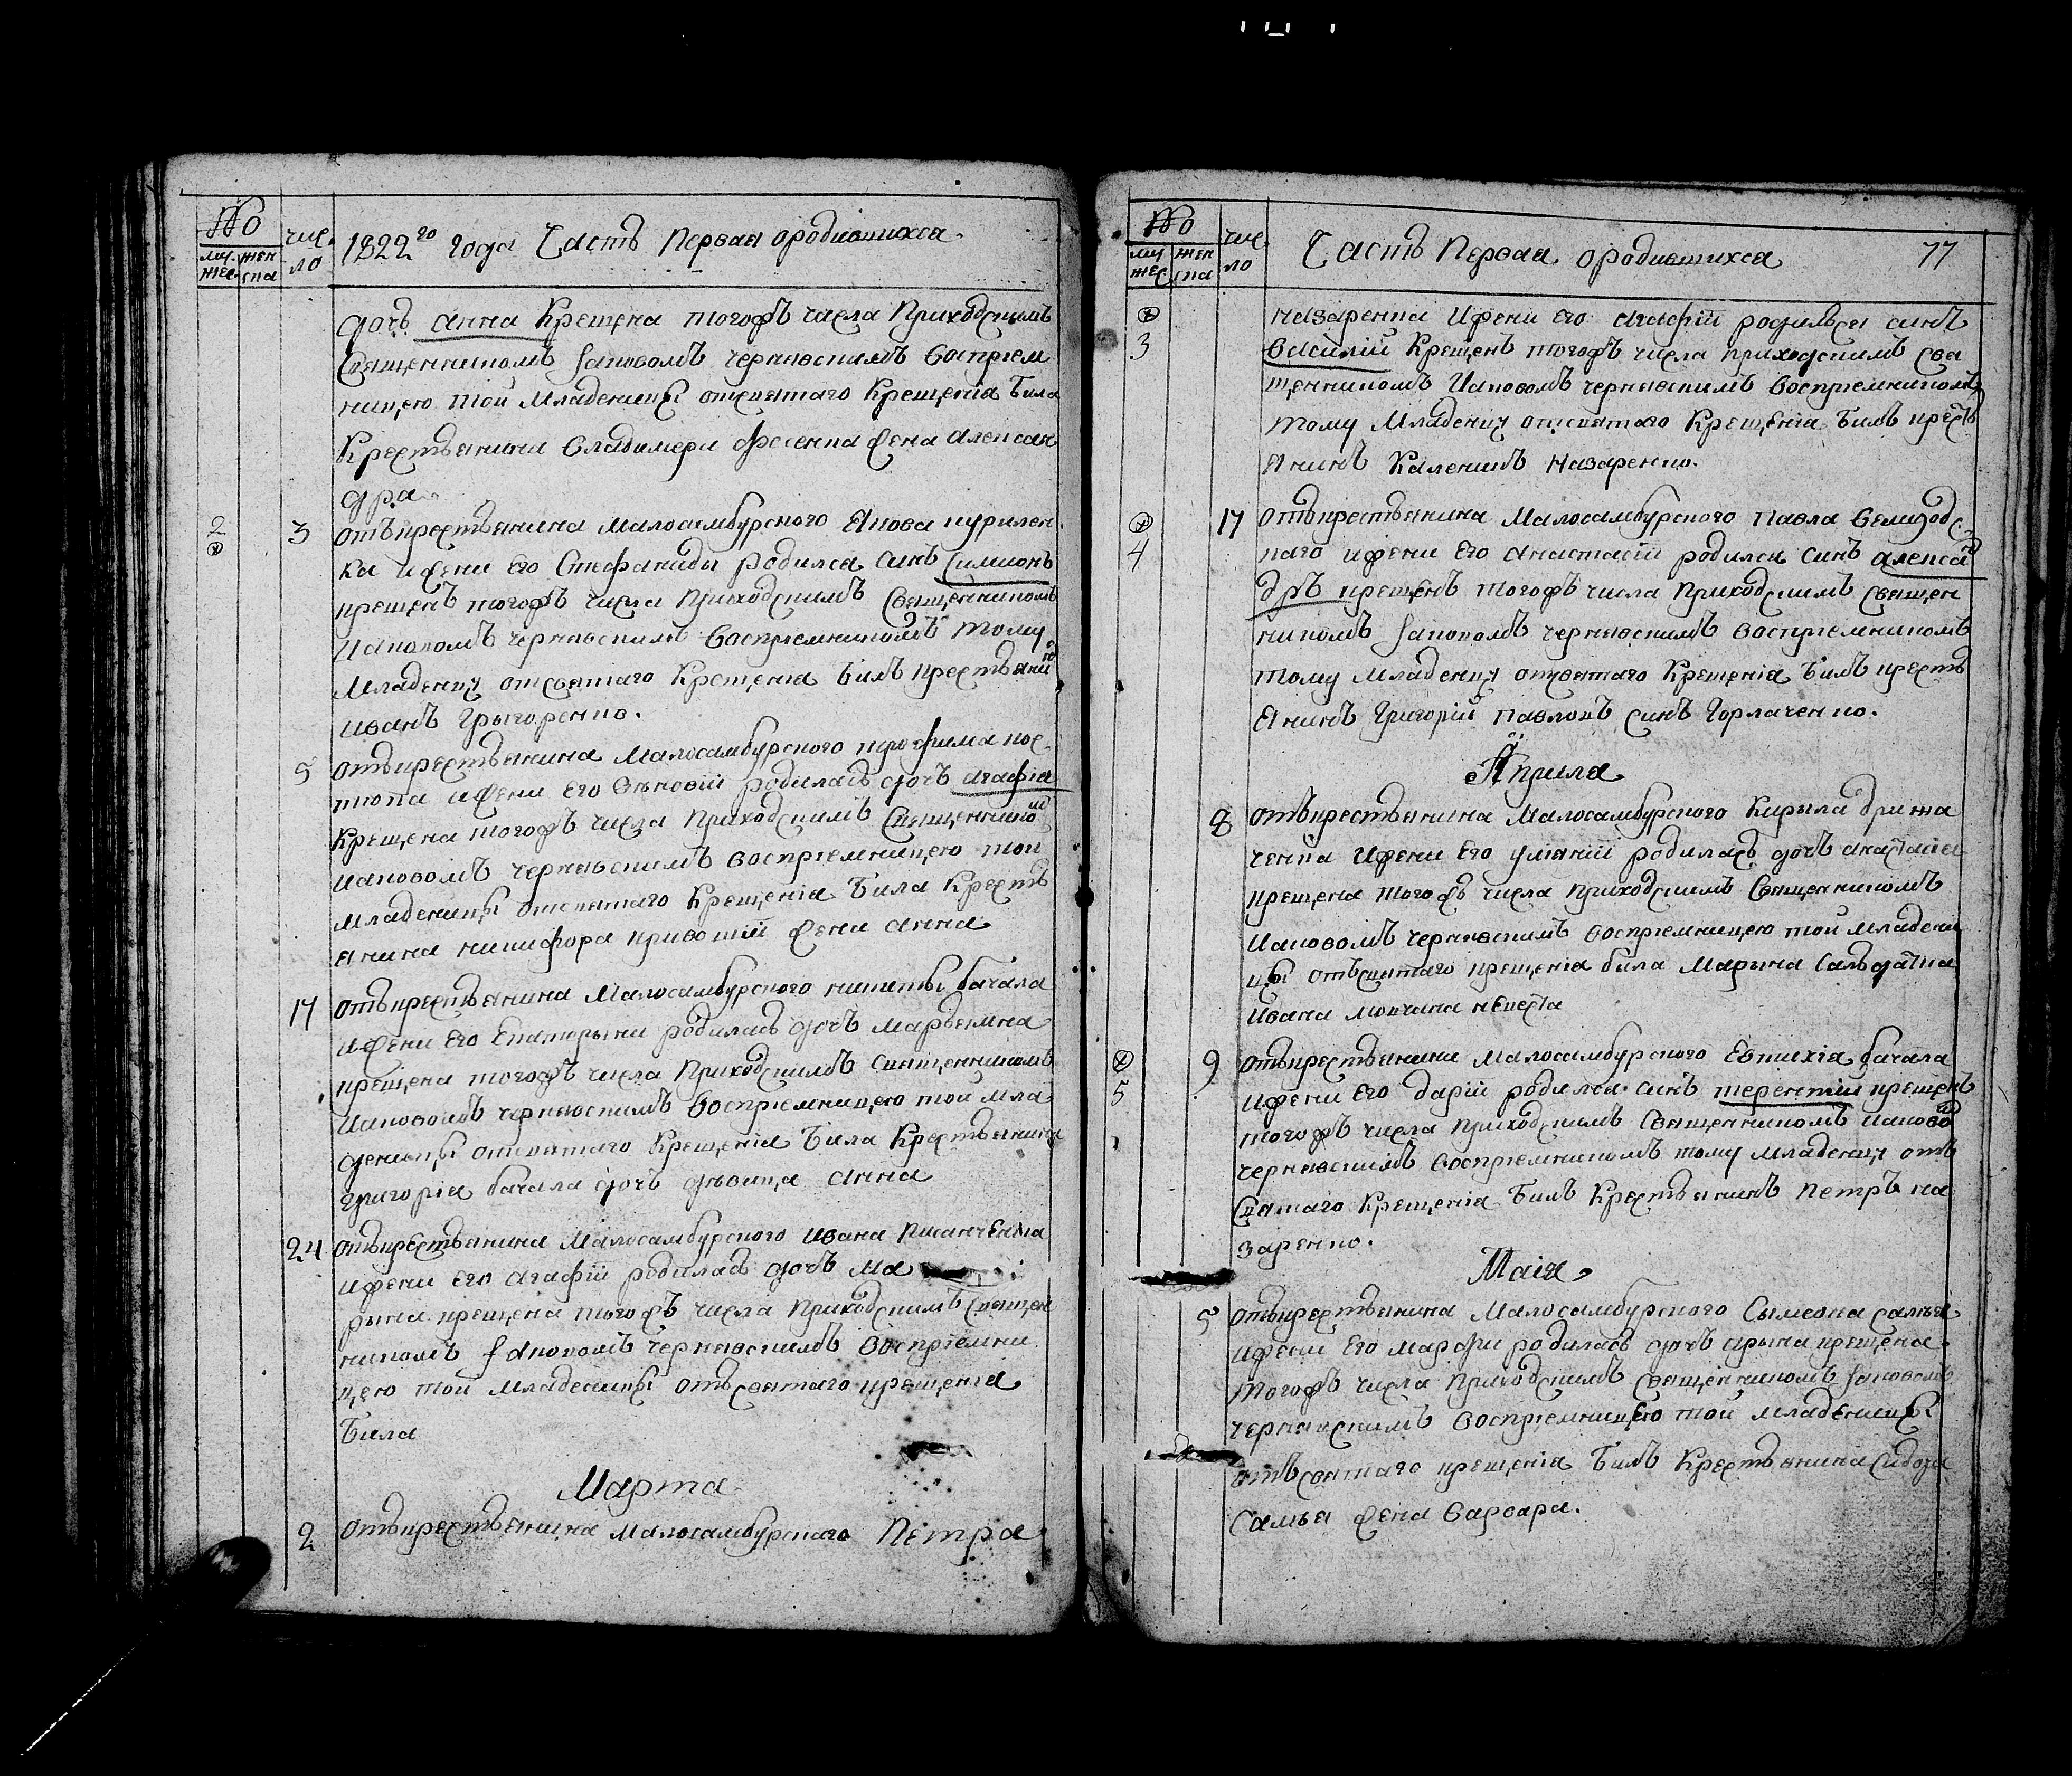 №
муж
жес
жен
ска
чис
ло
1822го года Часть Первая ородившихся
дочь Анна Крещена тогожъ числа Приходскимъ
Священникомъ Іаковомъ Чернявскимъ Восприем
ницею той Младеницы отсвятаго Крещенія била
Крестьянина Владимера Фесенка жена Алексан
дра
2
3
отъкрестьянина Малосамбурского Якова куриленка
ка ижени Его Стефаниды родился синъ Симионъ
крещенъ тогожъ числа Приходскимъ Священникомъ
Иаковомъ Чернявскимъ Восприемникомъ тому
Младенцу отсвятаго Крещенія билъ крестьянинъ
иванъ Грыгоренко.
5
отъкрестьянина Малосамбурского трофима кос
тюка ижени Его Зѣновіи родилась дочь Агафія
Крещена тогожъ числа Приходскимъ Священнико
Иаковомъ Чернявскимъ восприемницею той
младеницы отсвятаго Крещенія била Кресть
янина никифора кривошіи жена Анна
17
отъкрестьянина Малосамбурского никиты бачала
ижени Его Екатирыни родилась дочь Марьямна
крещена тогожъ числа Приходскимъ Священникомъ
Иаковомъ Чернявскимъ Восприемницею той мла
деницы отсвятаго Крещенія била Крестьянина
григорія бачала дочь дѣвица Анна
24
отъкрестьянина Малосамбурского ивана
ижени Его Агафіи родилась дочь Ма
рына крещена тогожъ числа Приходскимъ Священ
никомъ Іаковомъ Чернявскимъ Восприемни
цею той младеницы отъсвятаго крещенія
била
Марта
2
отъкрестьянина Малосамбурскаго Петра
№
муж
жес
жен
ска
чис
ло
Часть Первая ородившихся
77
3
Назаренка Ижени Его Агафіи родилъся синъ
Василій Крещенъ тогожъ числа приходскимъ свя
щенникомъ Иаковомъ Чернявскимъ Восприемникомъ
тому Младенцу отсвятаго Крещенія билъ кресть
янинъ Каленикъ Назаренко.
4
17
отъкрестьянина Малосамбурского Павла Великод
наго ижени Его Анастасіи родился Синъ Алекса
дръ крещенъ тогожъ числа Приходскимъ Священ
никомъ Іаковомъ Чернявскимъ восприемникомъ
тому Младенцу отсвятаго Крещенія билъ кресть
янинъ Григорій Павловъ синъ Горлаченко.
Априля
8
отъкрестьянина Малосамбурского Кирыла
ченка Ижени Его Улияніи родилась дочь Анастасія
крещена тогожъ числа Приходскимъ Священникомъ
Иаковомъ Чернявскимъ восприемницею той младени
цы отъсвятаго крещенія била Марына Салъдатка
Ивана мовчана невеста
5
9
отъкрестьянина Малосамбурского Евтихія бачала
ижени Его Дарій родился синъ терентий крещенъ
тогожъ числа приходскимъ Священникомъ Иаково
чернявскимъ Восприемникомъ тому младенцу отъ
Святаго Крещенія билъ Крестьянинъ Петръ На
заренко.
Маія
5
отъкрестьянина Малосамбурского Сымеона Самъя
ижени Его марфи родилась дочь арына крещена
тогожъ числа приходскимъ Священникомъ Іаковомъ
чернявскимъ Восприемницею той младеницы
отъсвятаго крещенія билъ Крестьянина Сидора
Самъя жена Варвара.